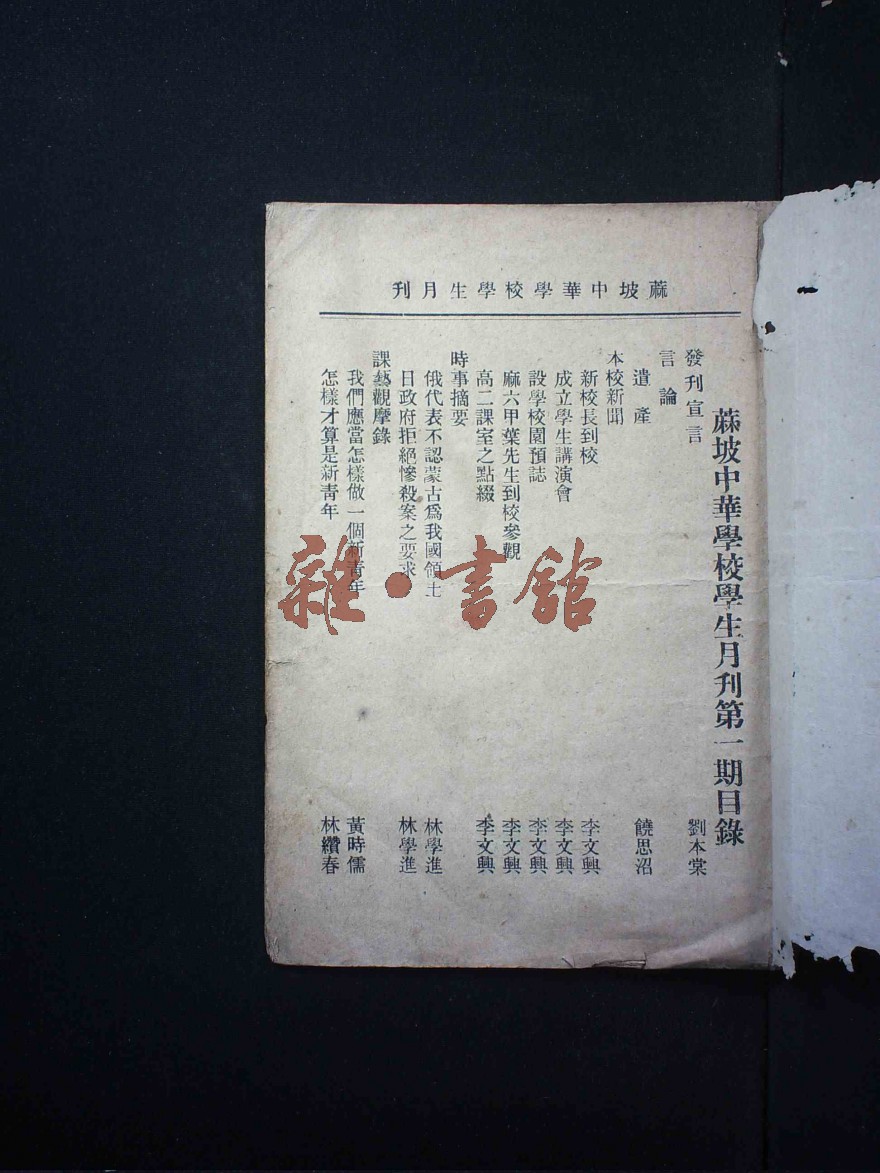 蔴坡中華學校學生月刊
蔴坡中華學校學生月刊第一期目錄
發刊宣言 劉本棠
言論
遺產 饒思沼
本校新聞
新校長到校 李文興
成立學生講演會 李文興
設學校園預誌 李文興
麻六甲葉先生到校參觀 李文興
高二課室之點綴 李文興
時事摘要
俄代表不認蒙古爲我國領土 林學進
日政府拒絕慘殺案之要求 林學進
課藝觀摩錄
我們應當怎樣做一個新青年 黃時儒
怎樣才算是新青年 林纘春
雜·書館